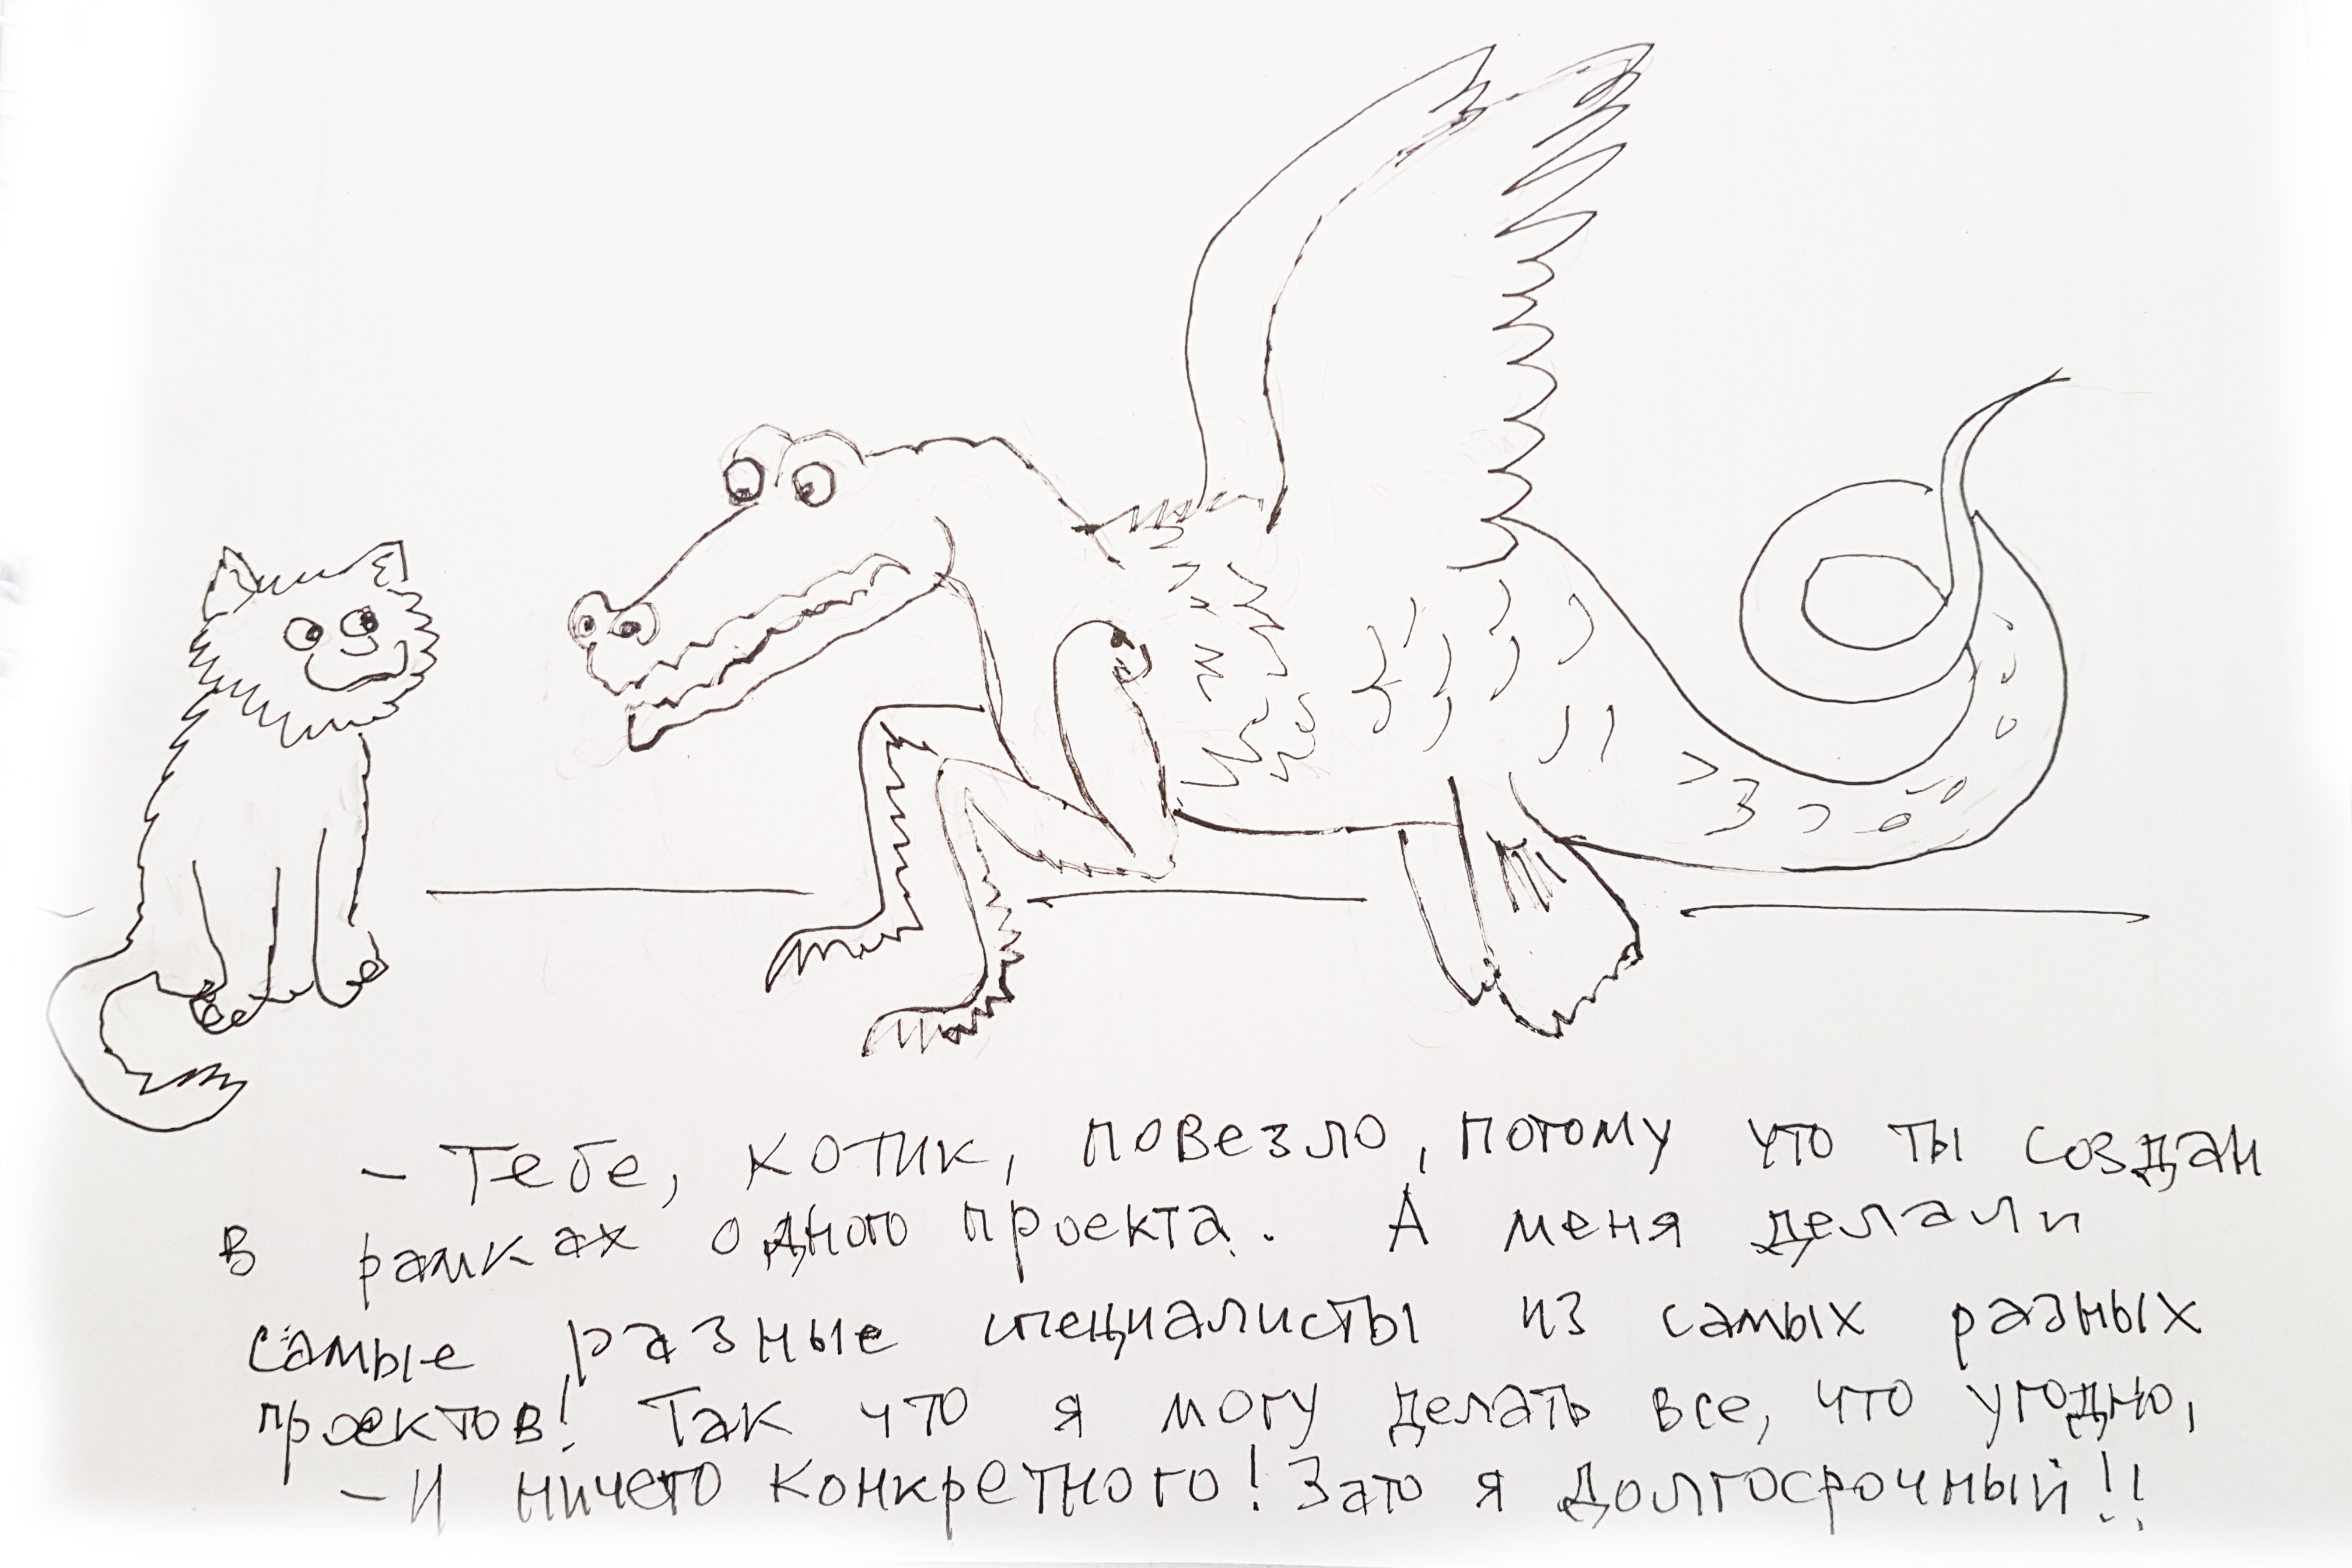 - Тебе, котик, повезло, потому что ты создан
в рамках одного проекта. А меня делали
самые разные специалисты из самых разных
проектов! Так что я могу делать все, что угодно,
- И ничего конкретного! Зато я долгосрочный!!